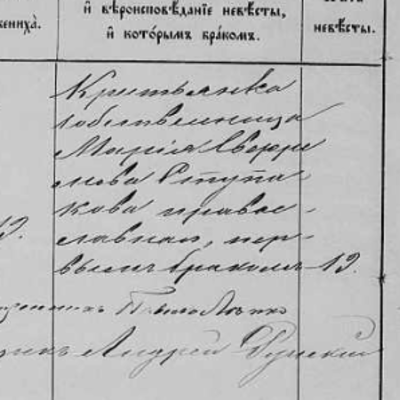 ениха̀.
и҆ вѣроисповѣ́данїе невѣ́сты,
и҆ кото́рымъ бра́комъ.
невѣ́сты.
Крестьянка
собственница
Марія
нова Ступа
кова правос-
лавная, пер-
вымъ бракомъ
19.
Павло
Андрей